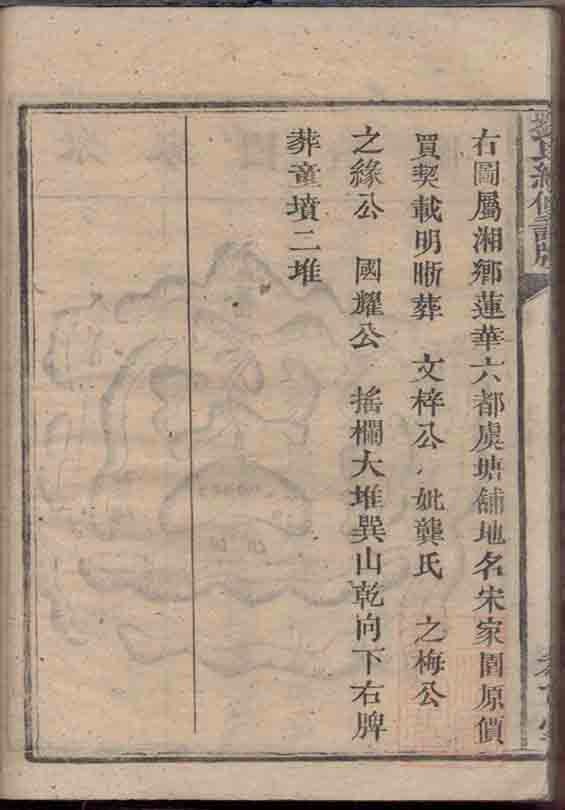 右圖屬湘鄉蓮華六都虞塘舖地名宋家園原價
買契載明晰葬　文梓公　妣龔氏　之梅公
之緣公　國耀公　搖欄大堆巽山乾向下右脾
葬童墳二堆